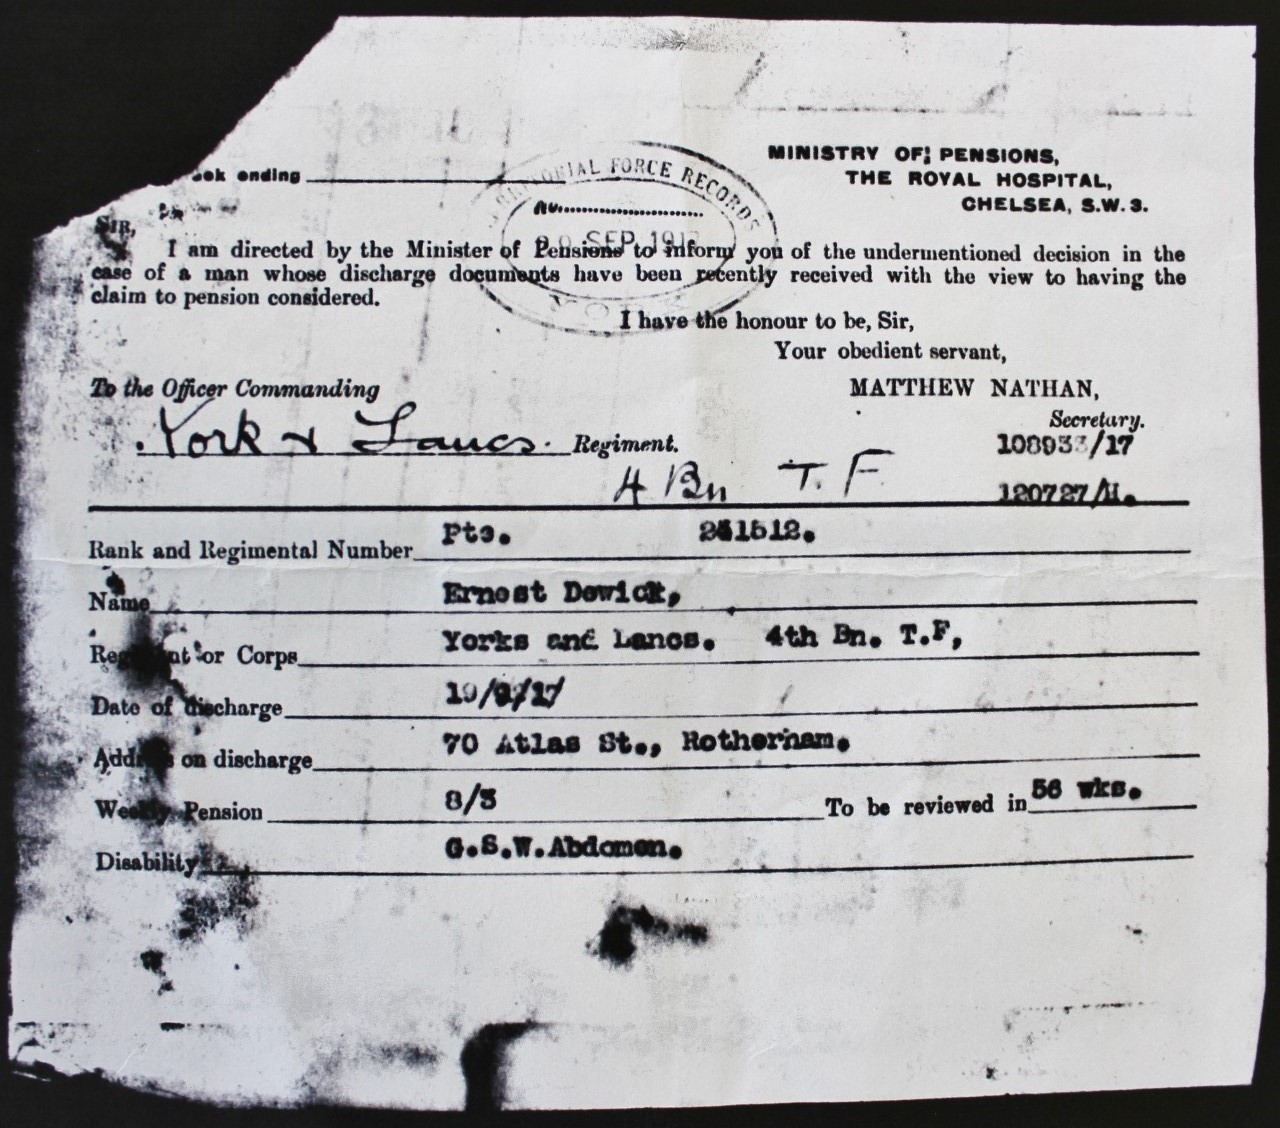 ending
TERRITORIAL FORCE RECORDS
No.
SEP 1917
YORK
MINISTRY OF PENSIONS,
THE ROYAL HOSPITAL,
CHELSEA, S.W. 3.
SIR,
I am directed by the Minister of Pensions to inform you of the undermentioned decision in the
case of a man whose discharge documents have been recently received with the view to having the
claim to pension considered.
I have the honour to be, Sir,
Your obedient servant,
To the Officer Commanding
MATTHEW NATHAN,
Secretary.
York & Lancs. Regiment.
108933/17
4 Bn T. F
120727/M.
Rank and Regimental Number Pte. 241512.
Name Ernest Dewick,
Regiment or Corps Yorks and Lancs. 4th Bn. T.F,
Date of discharge
Address on discharge 70 Atlas St., Rotherham.
Weekly Pension 8/3 To be reviewed in 56 wks.
Disability G.S.W.Abdomen.